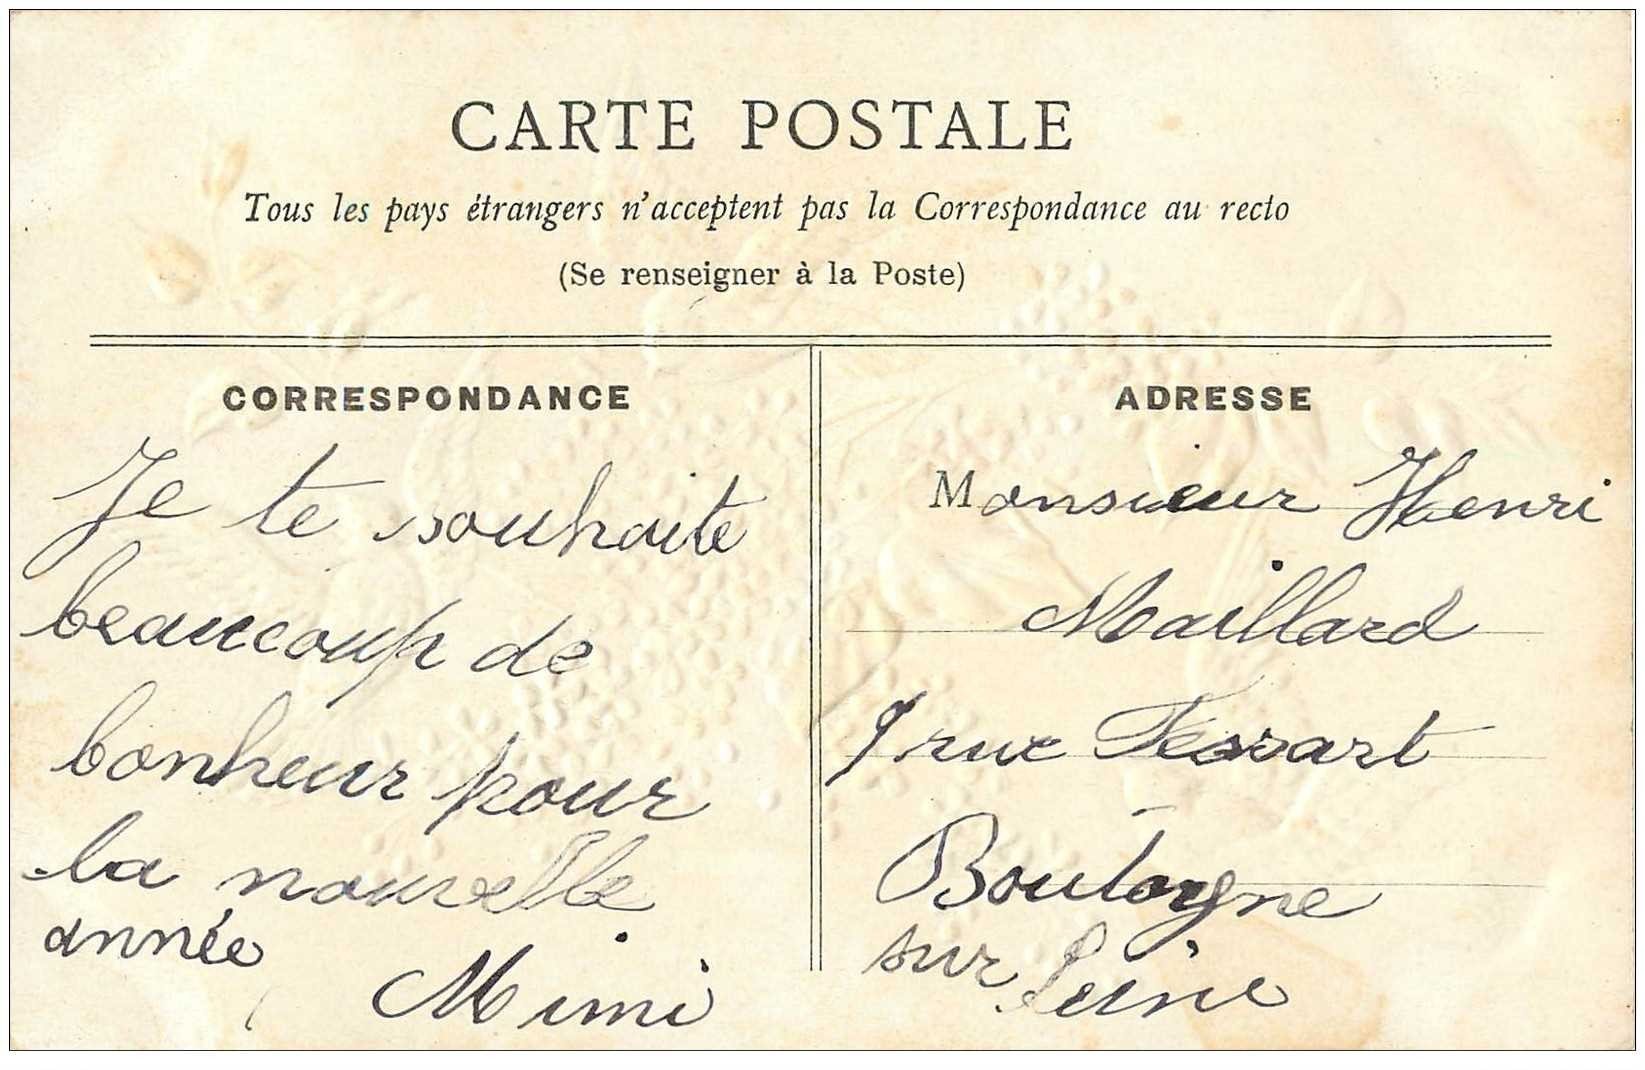 CARTE POSTALE
Tous les pays étrangers n'acceptent pas la Correspondance au recto
(Se renseigner à la Poste)
CORRESPONDANCE
Je te souhaite
beaucoup de
bonheur pour
la nouvelle
année
Mimi
ADRESSE
Monsieur Henri
Maillard
9 rue Fessart
Boulogne
sur Seine